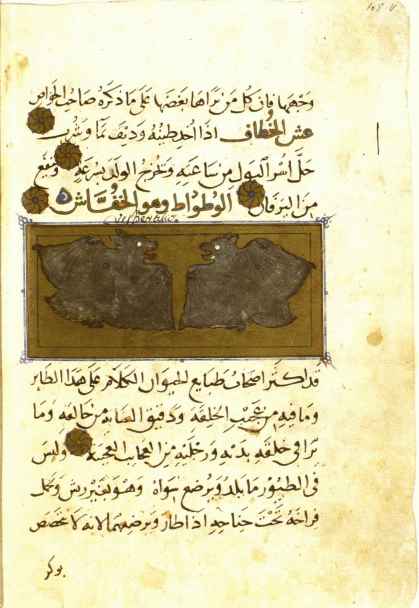 وجهها فان كل من يراها بغضها على ما ذكره صاحب الخواص
عش الخطاف اذا اخذ طينه وديف بما وشرب
حل اسر البول من ساعته وتخرج الولد بسرعه وينفع
من اليرقان الوطواط وهو الخفاش
Vespertilio.
قد اكثر اصحاب طبايع الحيوان الكلام على هذا الطاير
وما فيه من عجيب الخلقه ودقيق من خالقه وما
ترا في خلقه بدنه ورجليه من العجايب العجيبه وليس
في الطيور ما يلد ويرضع سواه وهو بغير ريش ويحمل
فراخه تحت جناحه اذا طار ويرضعهما لانه لا
بوكر